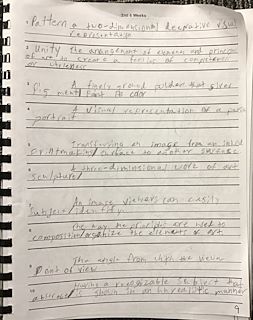 2nd 6 Weeks
1 Pattern a two-dimensional decorative visual
representation
2 Unity the arrangement of elements and principles
of art to create a feeling of completeness
or wholeness
3 A finely ground powder that gives
pigment paint its color
4 A visual representation of a person
portrait
5 Transferring an image from an inked
printmaking/surface to another surface
6 A three-dimensional work of art
sculpture/
7 An image viewers can easily
subject/identify.
8 the way the principles are used to
composition/organize the elements of art
9 The angle from which the viewer
Point of view
10 Having a recognizable subject that
abstract is shown in an unrealistic manner
9